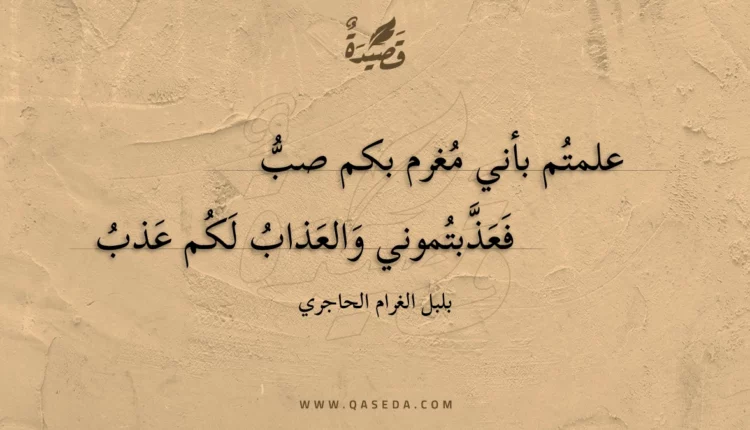 قَصِيْدَةٌ
علمتُم بأني مُغرم بكم صبُّ
فَعَذَّبتُموني وَالعَذابُ لَكُم عَذبُ
بلبل الغرام الحاجري
WWW.QASEDA.COM